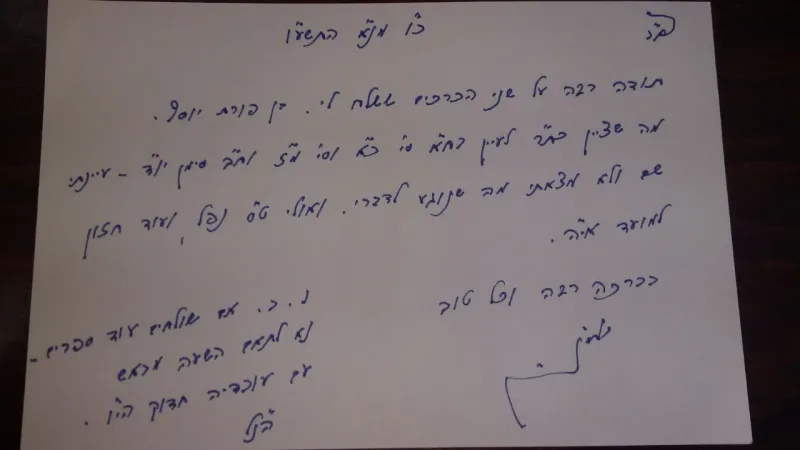 בס"ד
כ"ו מנ"א התשע"ו
תודה רבה על שני הכרכים ששלח לי. בן פורת יוסף.
מה שציין כת"ר לעיין בח"א סי' כ"א וסי' מ"ז וח"ב סימן יו"ד - עיינתי
שם ולא מצאתי מה שנוגע לדברי. ואולי ט"ס נפל, ועוד חזון
למועד אי"ה.
בברכה רבה וכל טוב
נ.ב. אם שולחים עוד ספרים -
נא לתאם השעה מראש
עם עובדיה חדוק הי"ו.
הנ"ל